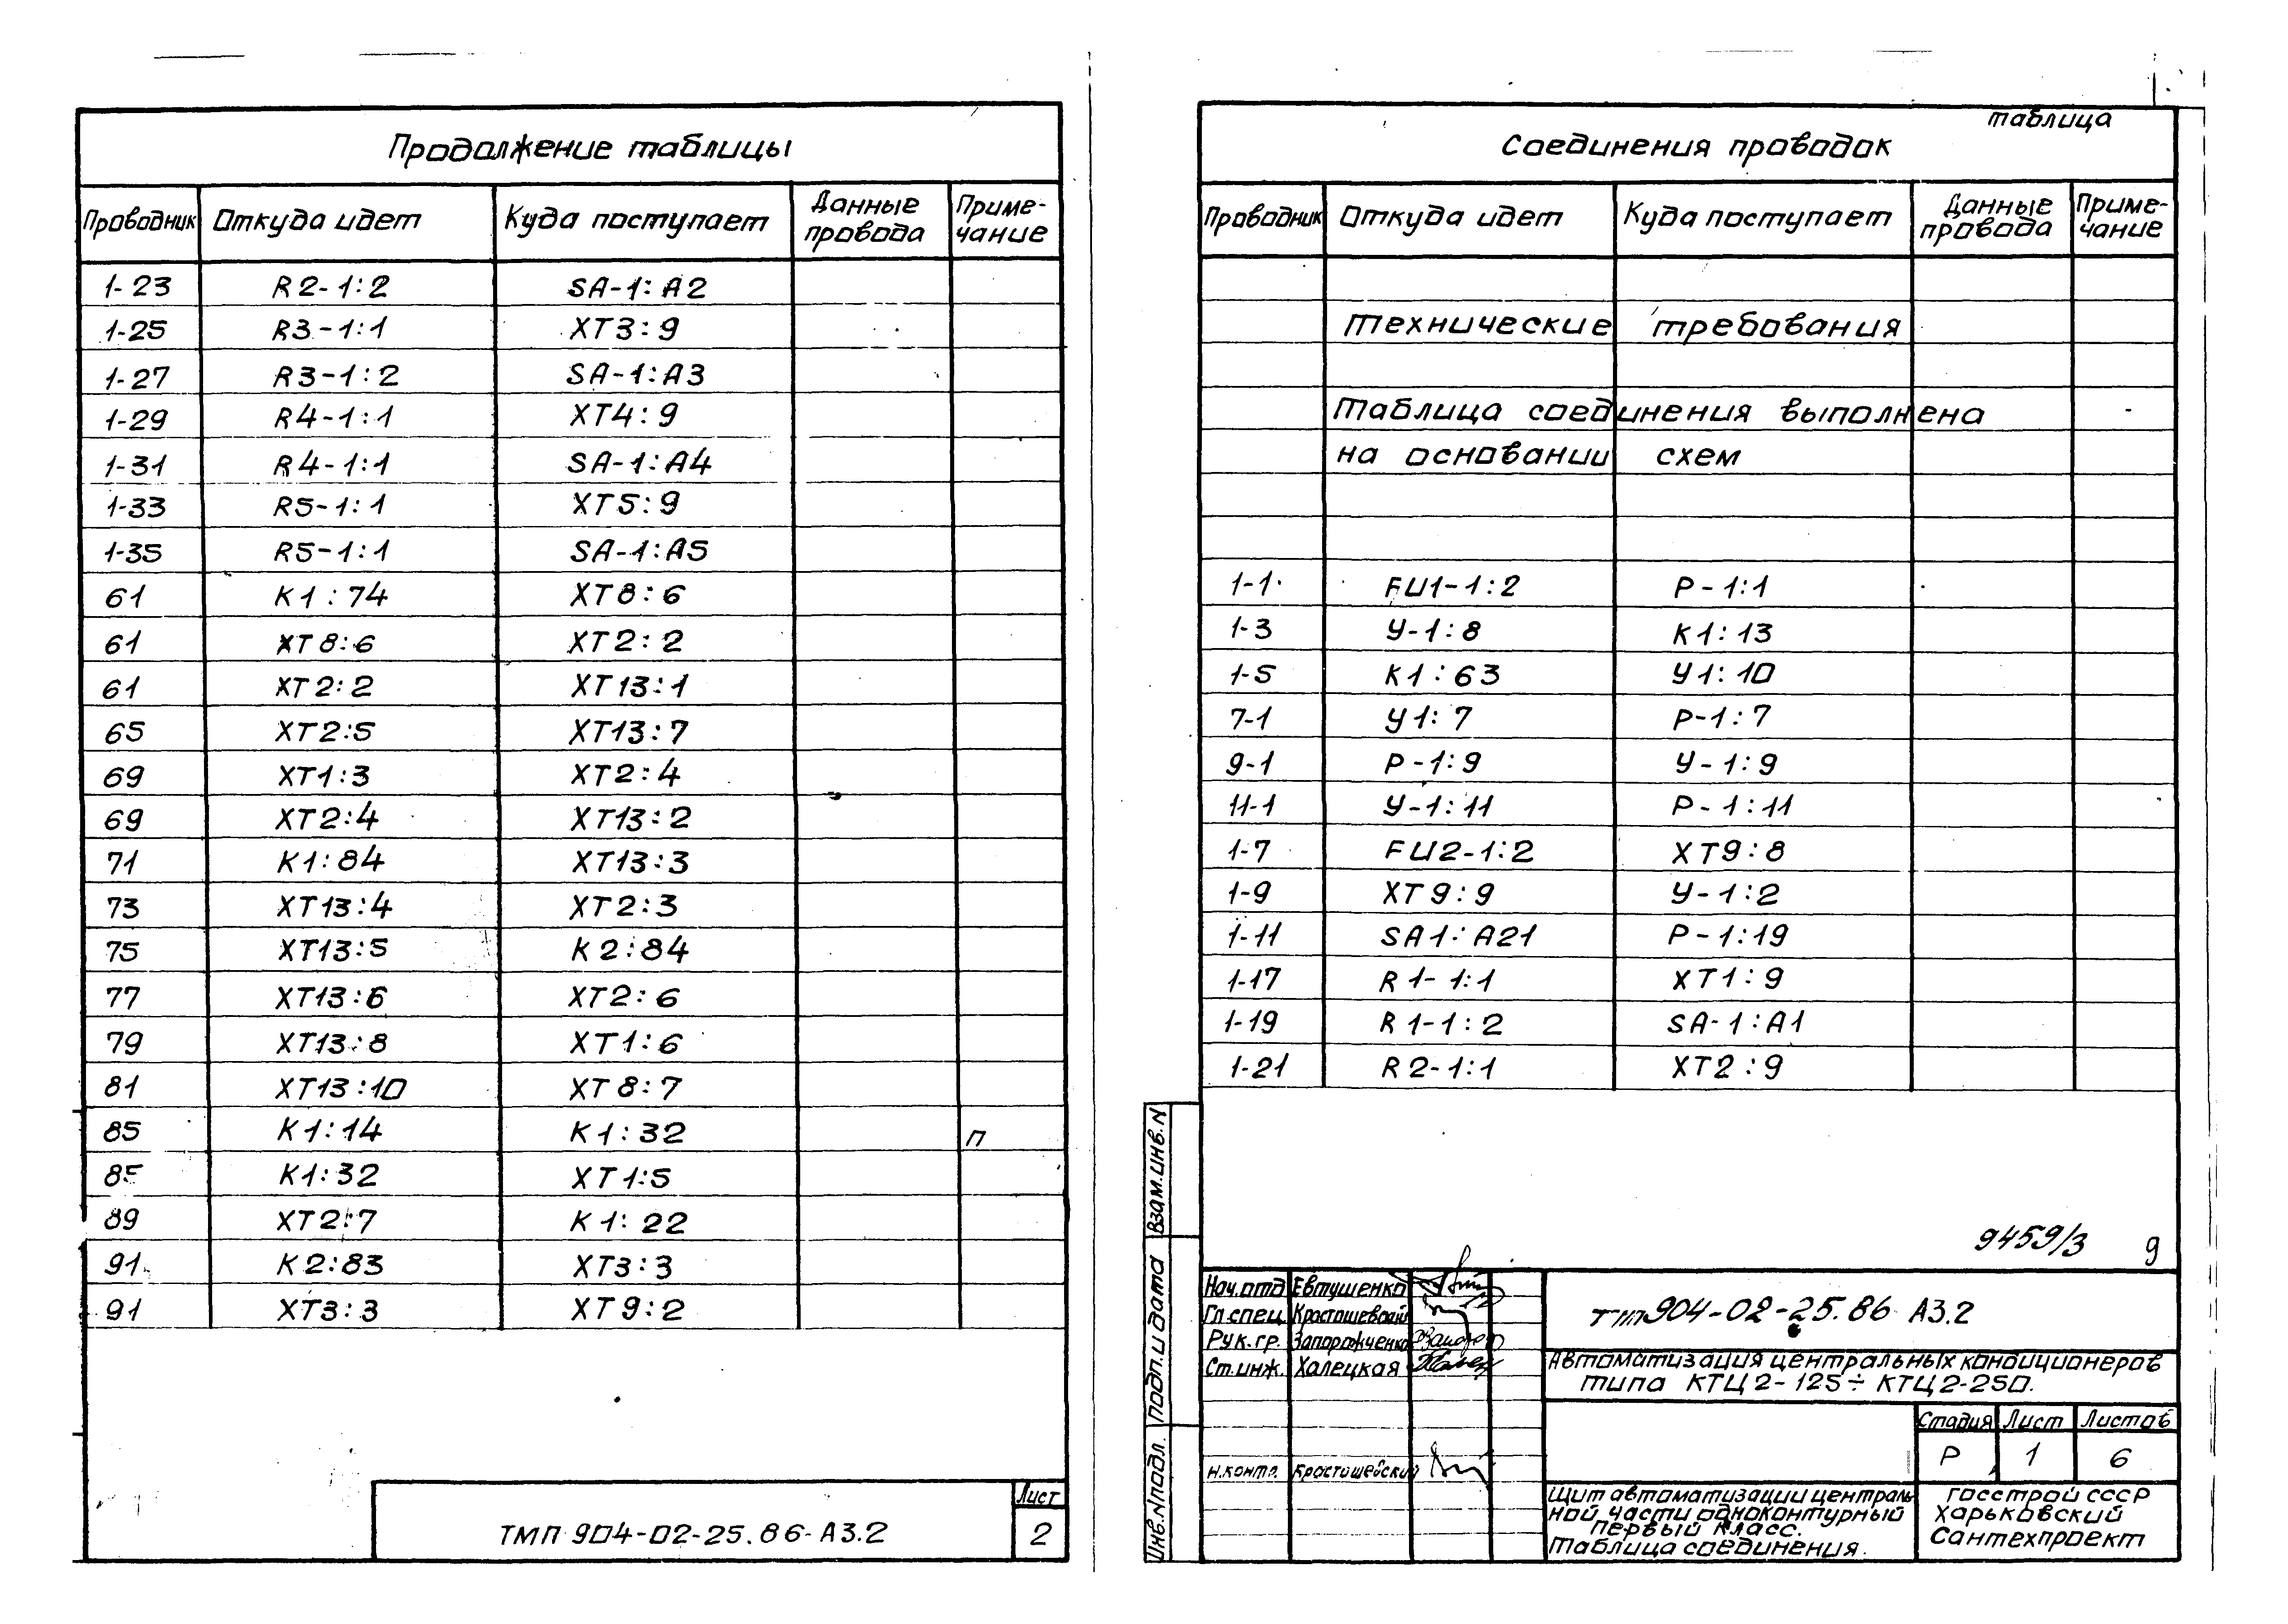 Продолжение таблицы
Проводник Откуда идет Куда поступает Данные провода Приме-чание
1-23 R2-1:2 SA-1:A2
1-25 R3-1:1 XT3:9
1-27 R3-1:2 SA-1:A3
1-29 R4-1:1 XT4:9
1-31 R4-1:1 SA-1:A4
1-33 R5-1:1 XT5:9
1-35 R5-1:1 SA-1:A5
61 K1:74 XT8:6
61 XT8:6 XT2:2
61 XT2:2 XT13:1
65 XT2:5 XT13:7
69 XT1:3 XT2:4
69 XT2:4 XT13:2
71 K1:84 XT13:3
73 XT13:4 XT2:3
75 XT13:5 K2:84
77 XT13:6 XT2:6
79 XT13:8 XT1:6
81 XT13:10 XT8:7
85 K1:14 K1:32 П
85 K1:32 XT1:5
89 XT2:7 K1:22
91 K2:83 XT3:3
91 XT3:3 XT9:2
ТМП 904-02-25.86-А3.2
Лист
2
таблица
Соединения проводок
Проводник Откуда идет Куда поступает Данные провода Приме-чание
Технические требования
Таблица соединения выполнена
на основании схем
1-1 FU1-1:2 P-1:1
1-3 У-1:8 K1:13
1-5 K1:63 У1:10
7-1 У1:7 P-1:7
9-1 P-1:9 У-1:9
11-1 У-1:11 P-1:11
1-7 FU2-1:2 XT9:8
1-9 XT9:9 У-1:2
1-11 SA1:A21 P-1:19
1-17 R1-1:1 XT1:9
1-19 R1-1:2 SA-1:A1
1-21 R2-1:1 XT2:9
Взам.инв.N
Подп.и дата
Инв.Nподл.
9459/3 9
Нач.отд Евтушенко
Гл спец Красташевский
Рук.гр. Запорожченко
Ст.инж. Халецкая
Н.контр. Красташевский
ТМП 904-02-25.86 А3.2
Автоматизация центральных кондиционеров
типа КТЦ2-125÷КТЦ2-250.
Стадия Лист Листов
Р 1 6
Щит автоматизации централь
ной части одноконтурный
первый класс.
Таблица соединения.
Госстрой СССР
Харьковский
Сантехпроект